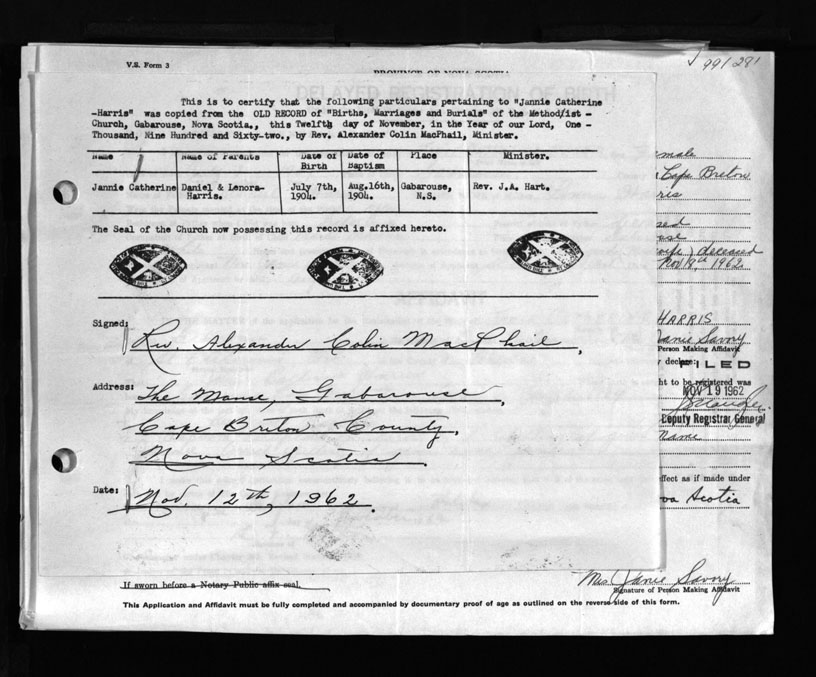 V.S. Form 3
PROVINCE OF NOVA SCOTIA
99/281
DELAYED REGISTRATION OF BIRTH
This is to certify that the following particulars pertaining to "Jannie Catherine
-Harris" was copied from the OLD RECORD of "Births, Marriages and Burials" of the Method/ist -
Church, Gabarouse, Nova Scotia., this Twelfth day of November, in the Year of our Lord, One -
Thousand, Nine Hundred and Sixty-two., by Rev. Alexander Colin MacPhail, Minister.
Name Name of Parents Date of Birth Date of Baptism Place Minister.
Jannie Catherine Daniel & Lenora- Harris. July 7th, 1904. Aug.16th, 1904. Gabarouse, N.S. Rev. J.A. Hart.
The Seal of the Church now possessing this record is affixed hereto.
Signed: Rev. Alexander Colin MacPhail,
Address: The Manse, Gabarouse,
Cape Breton County,
Nova Scotia.
Date: Nov. 12th, 1962.
emale
Cape Breton
ris
sed
use
deceased
Nov 8th, 1962
HARRIS
Janie Savory
Person Making Affidavit
declare:
FILED
ht to be registered was
NOV 19 1962
Deputy Registrar General
name
effect as if made under
va Scotia
If sworn before a Notary Public affix seal.
Mrs Janie Savory
Signature of Person Making Affidavit
This Application and Affidavit must be fully completed and accompanied by documentary proof of age as outlined on the reverse side of this form.